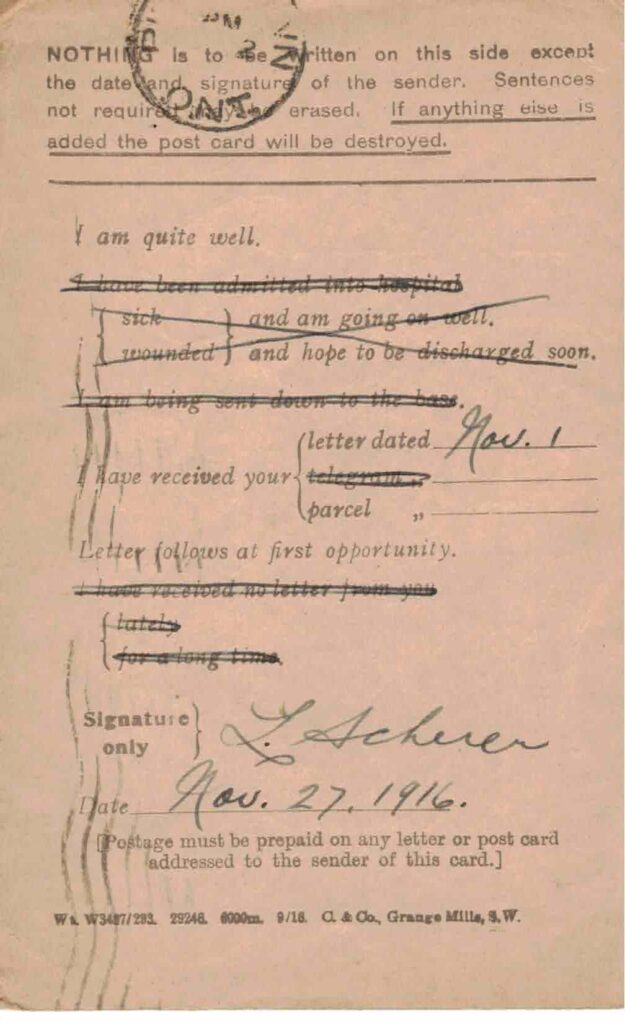 ONT
NOTHING is to be written on this side except
the date and signature of the sender. Sentences
not required may be erased. If anything else is
added the post card will be destroyed.
I am quite well.
I have been admitted into hospital
sick and am going on well.
wounded and hope to be discharged soon.
I am being sent down to the base.
letter dated Nov. 1
I have received your telegram „
parcel „
Letter follows at first opportunity.
I have received no letter from you
lately
for a long time.
Signature
only L. Scherer
Date Nov. 27, 1916.
[Postage must be prepaid on any letter or post card
addressed to the sender of this card.]
Wt. W3497/293. 29246. 6000m. 9/16. C. & Co., Grange Mills, S.W.